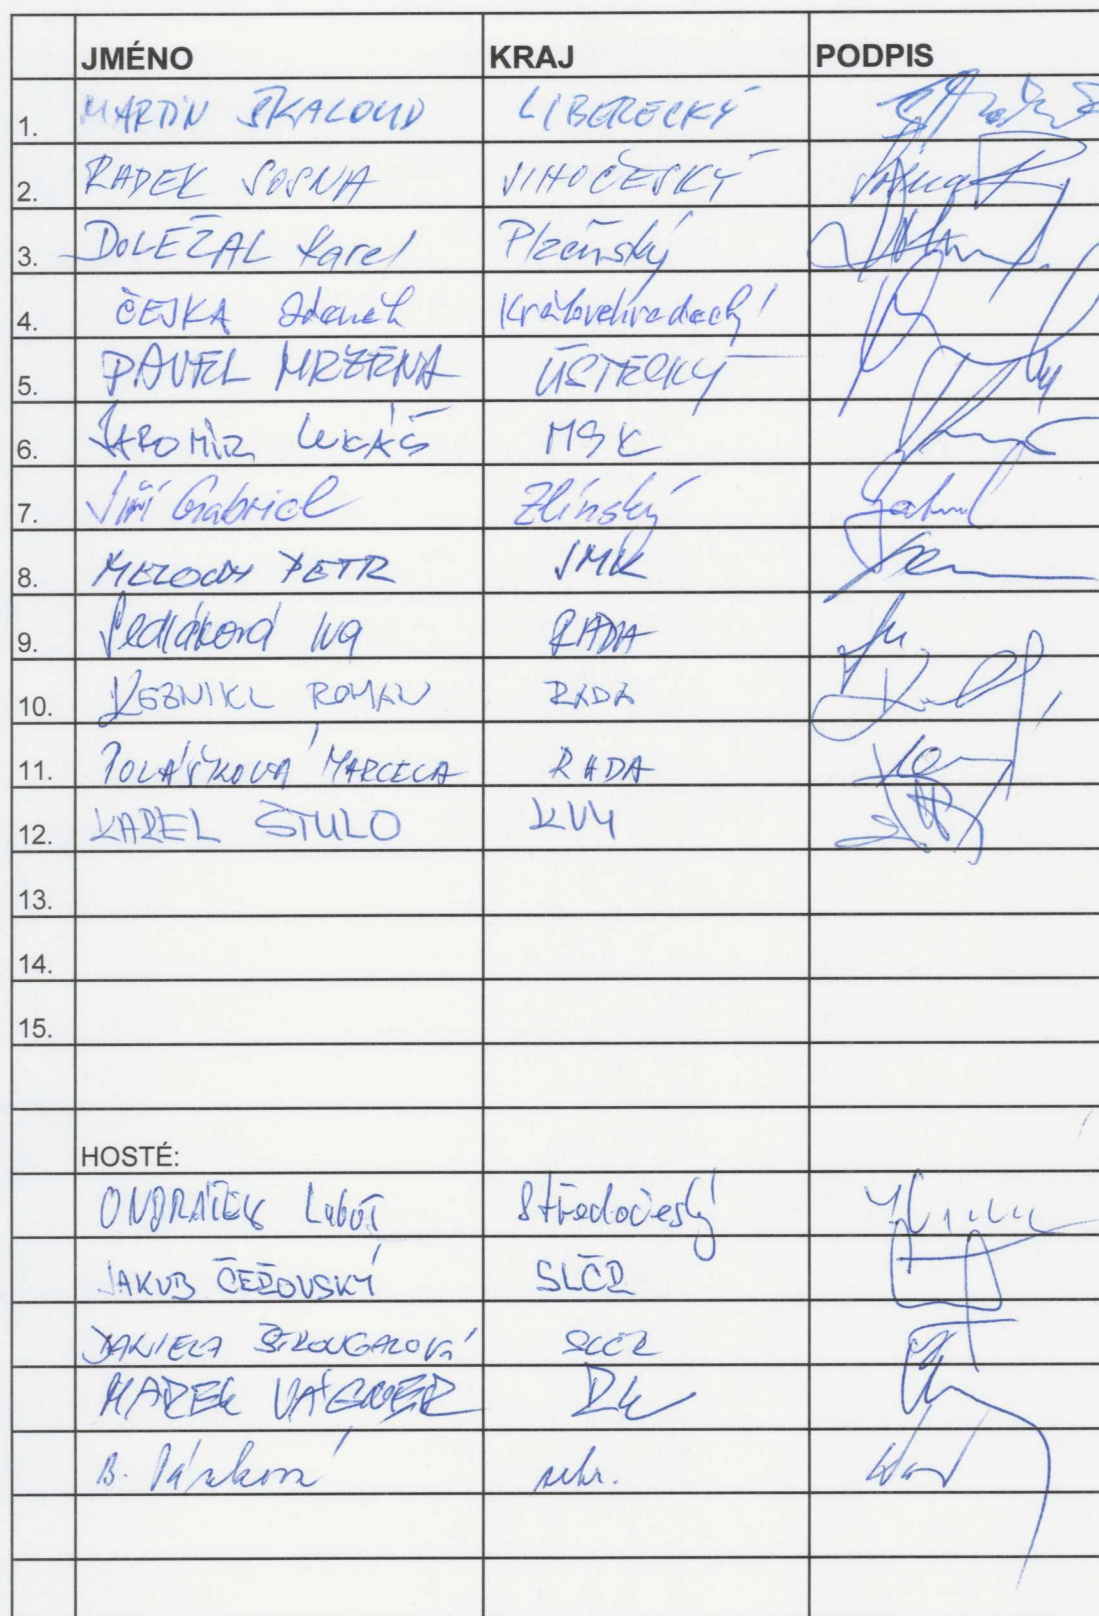 JMÉNO KRAJ PODPIS
1. MARTIN SKALOUD LIBERECKÝ
2. RADEK SOSNA JIHOČESKÝ
3. DOLEŽAL Karel Plzeňský
4. ČEJKA Zdeněk Královehradecký
5. PAVEL MRZENA ÚSTECKÝ
6. JAROMÍR LUKÁŠ MSK
7. Jiří Gabriel Zlínský
8. PETR JMK
9. Sedláková Iva RADA
10. ROMAN RADA
11. MARCELA RADA
12. KAREL ŠTULO KVY
13.
14.
15.
HOSTÉ:
ONDRÁČEK Luboš Středočeský
JAKUB SLČR
DANIELA SLČR
MAREK VÁGNER
B.